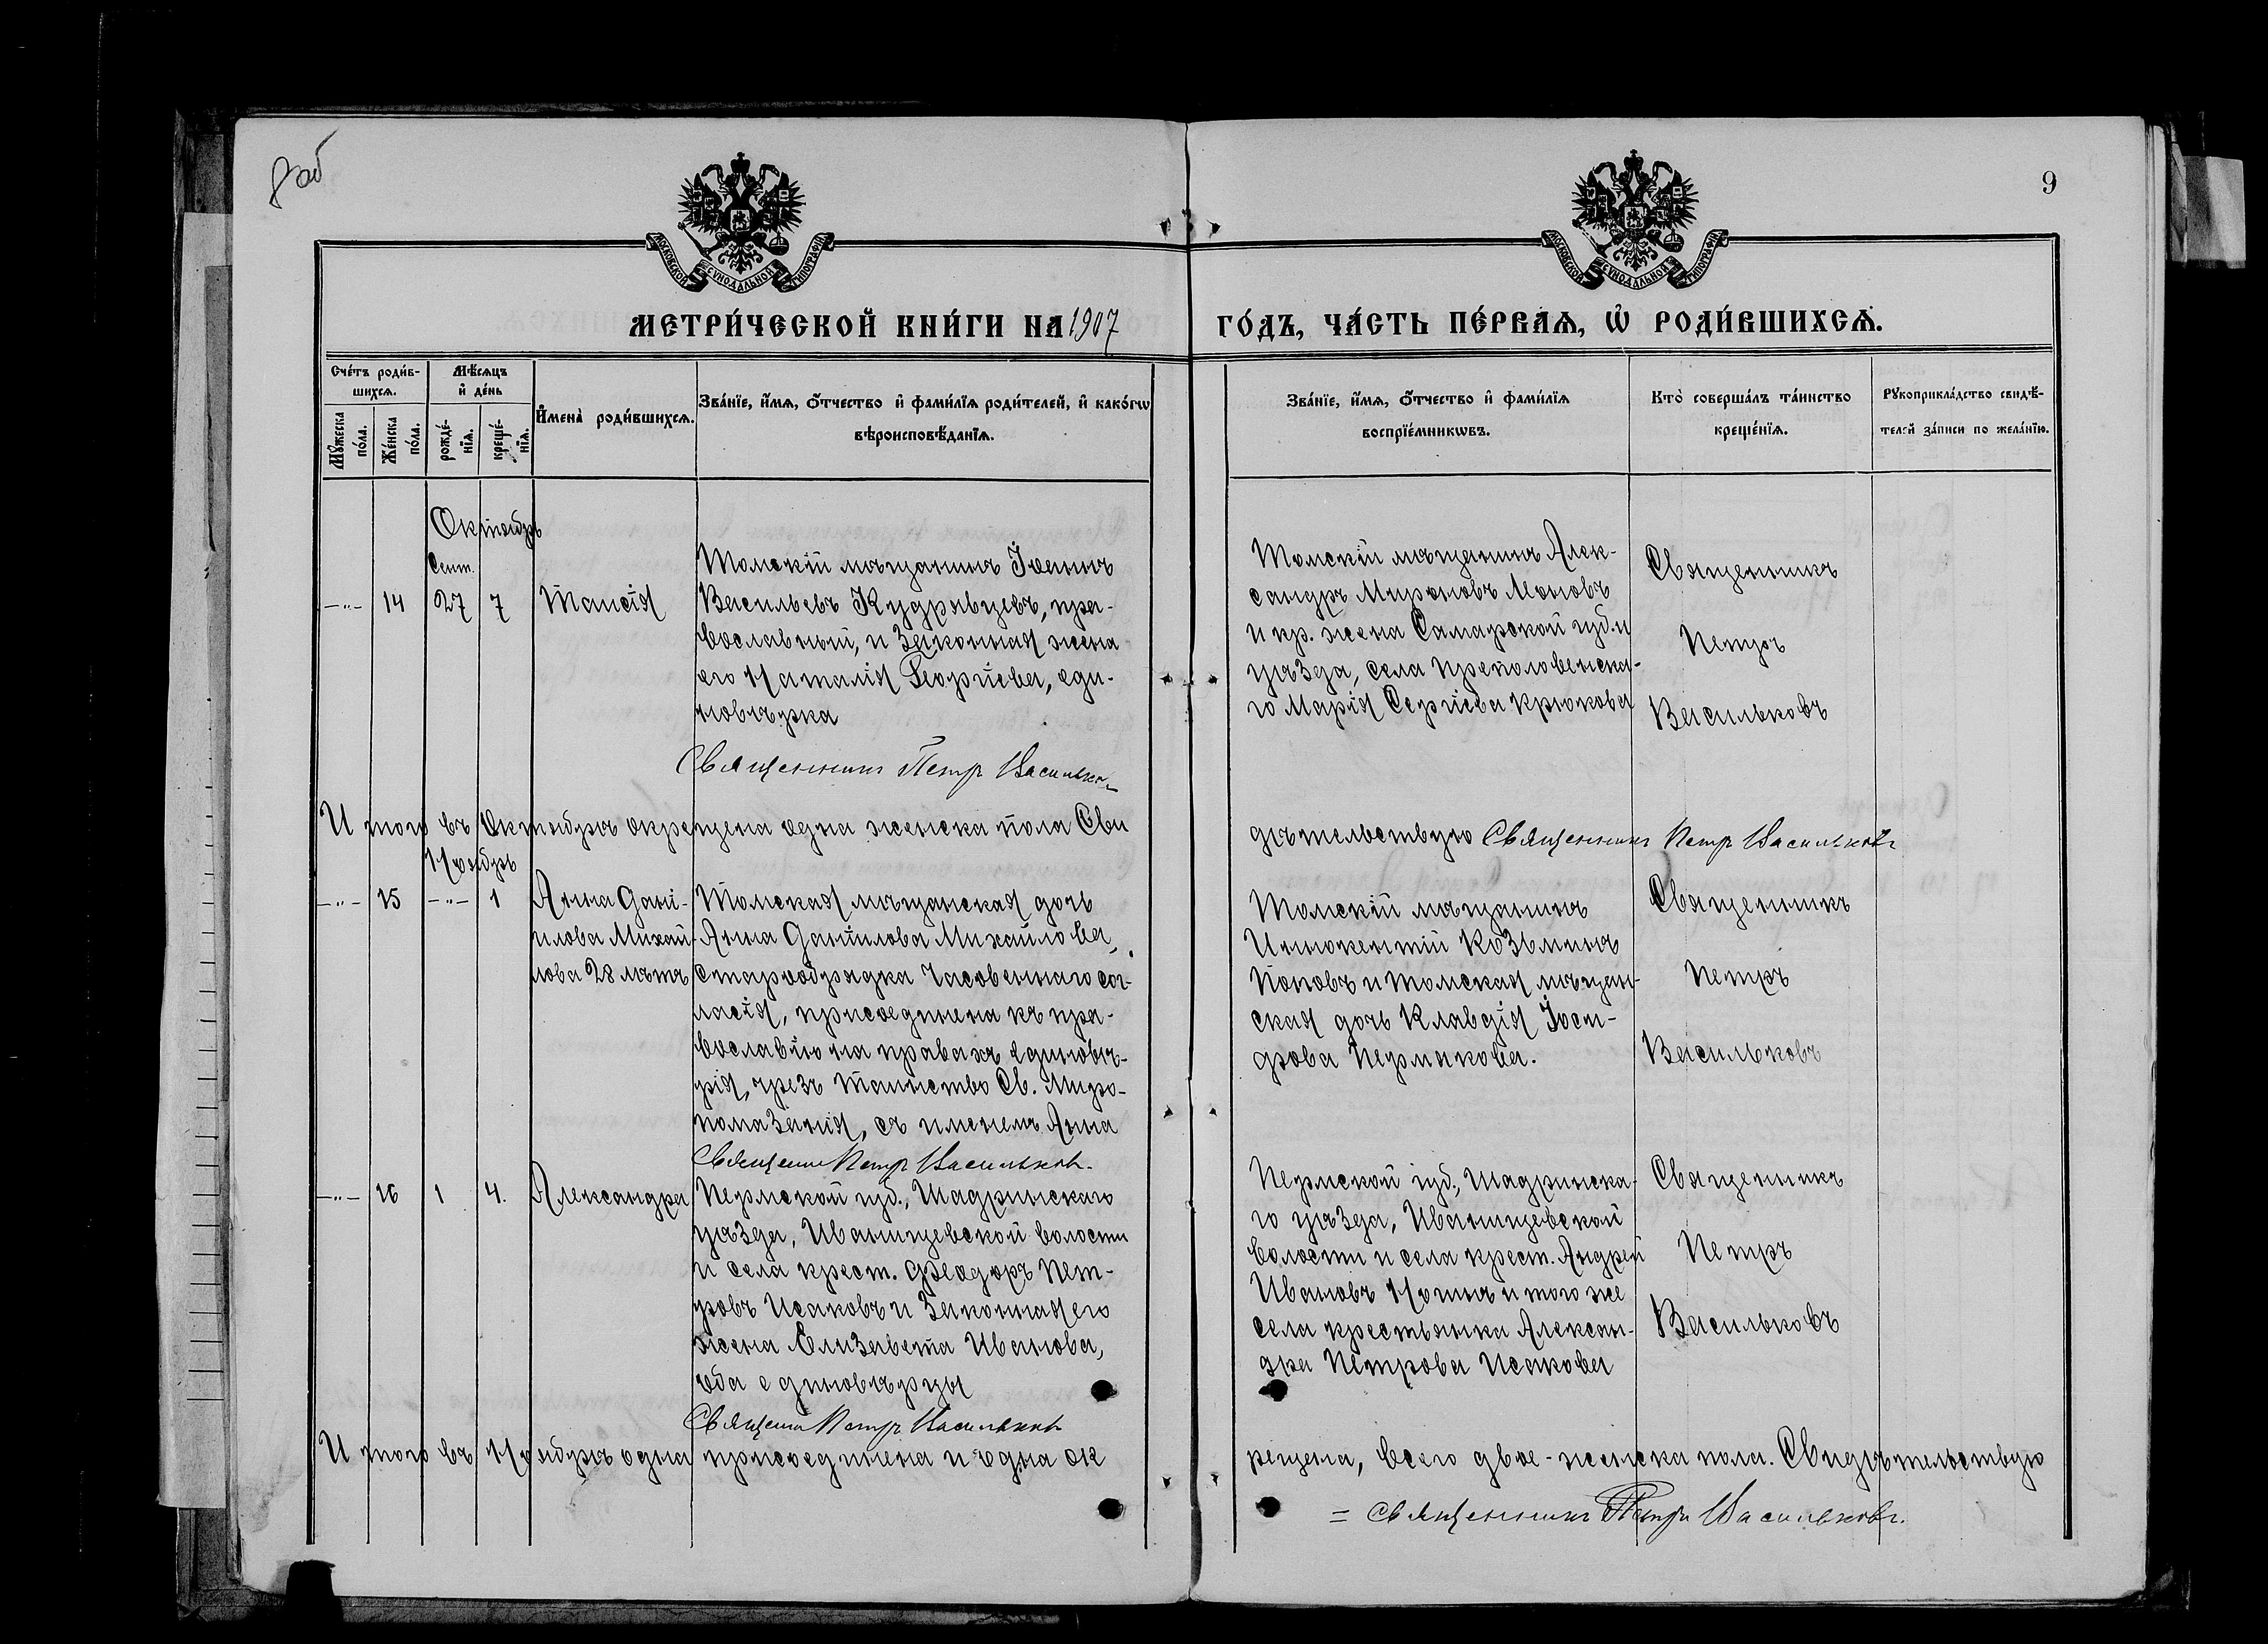 8 об
9
МОСКОВСКОЙ СѴНОДАЛЬНОЙ ТИПОГРАФІИ
МОСКОВСКОЙ СѴНОДАЛЬНОЙ ТИПОГРАФІИ
МЕТРИ́ЧЕСКОЙ КНИ́ГИ НА 1907
ГО́ДЪ, ЧА́СТЬ ПЕ́РВАѦ, Ѡ҆ РОДИ́ВШИХСѦ.
Сче́тъ роди́в-
шихсѧ.
Мꙋ́жеска
по́ла.
Же́нска
по́ла.
Мѣ́сѧцъ
и҆ де́нь
рожде́-
нїѧ.
креще́-
нїѧ.
И҆мена̀ роди́вшихсѧ.
Зва́нїе, и҆́мѧ, ѻ҆́тчество и҆ фами́лїѧ роди́телей, и҆ како́гѡ
вѣроисповѣ́данїѧ.
Зва́нїе, и҆́мѧ, ѻ҆́тчество и҆ фами́лїѧ
воспрїе́мникѡвъ.
Кто̀ соверша́лъ та́инство
креще́нїѧ.
Рꙋкоприкла́дство свидѣ́-
телей за́писи по жела́нїю.
Октябрь
Сент.
-"- 14 27 7 Таисія
Томскій мѣщанинъ Іоаннъ
Васильевъ Кудрявцевъ, пра-
вославный, и законная жена
его Наталія Георгіева, еди-
новѣрка
Священникъ Петръ Васильковъ
Томскій мѣщанинъ Алек-
сандръ Мироновъ Моновъ
и кр. жена Самарской губ. и
уѣзда, села Преполовенска-
го Марія Сергіева Крюкова
Священникъ
Петръ
Васильковъ
Итого въ Октябрѣ окрещена одна женска пола Сви
дѣтельствую Священникъ Петръ Васильковъ
Ноябрь
-"- 15 -"- 1
Анна Дані-
илова Михай-
лова 28 лѣтъ
Томская мѣщанская дочь
Анна Даніилова Михайлова,
старообрядка Часовеннаго со-
гласія, присоединена къ пра-
вославію на правахъ единовѣ-
рія, чрезъ таинство Св. Миро-
помазанія, съ именемъ Анна
Священникъ Петръ Васильковъ
Томскій мѣщанинъ
Иннокентій Козьминъ
Поповъ и томская мѣщан-
ская дочь Клавдія Іоси-
фова Пермякова.
Священникъ
Петръ
Васильковъ
-"- 16 1 4. Александра
Пермской губ., Шадринскаго
уѣзда, Иванищевской волости
и села крест. Феодоръ Пет-
ровъ Исаковъ и законная его
жена Елизавета Иванова,
оба единовѣрцы
Священникъ Петръ Васильковъ
Пермской губ., Шадринска-
го уѣзда, Иванищевской
волости и села крест. Андрей
Ивановъ и того же
села крестьянка Алексан-
дра Петрова Исакова
Священникъ
Петръ
Васильковъ
Итого въ Ноябрѣ одна присоединена и одна ок
рещена, всего двое - женска пола. Свидѣтельствую
= Священникъ Петръ Васильковъ.